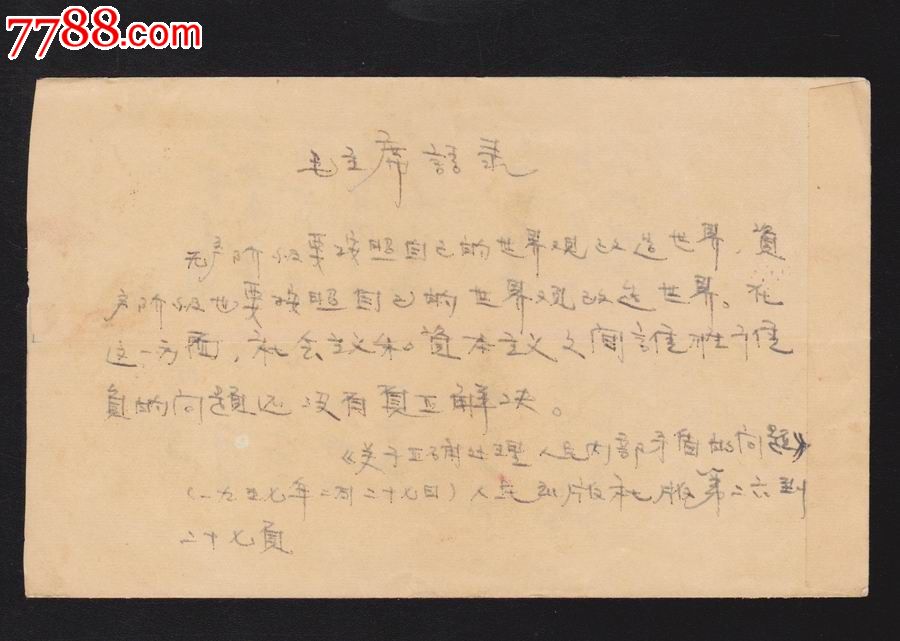 7788.com
中国收藏热线
毛主席語录
无产阶级要按照自己的世界观改造世界，資
产阶级也要按照自己的世界观改造世界。在
这一方面，社会主义和資本主义之间誰胜
負的问題还没有真正解决。
《关于正确处理人民内部矛盾的问题》
（一九五七年二月二十七日）人民出版社版第二六到
二十七頁